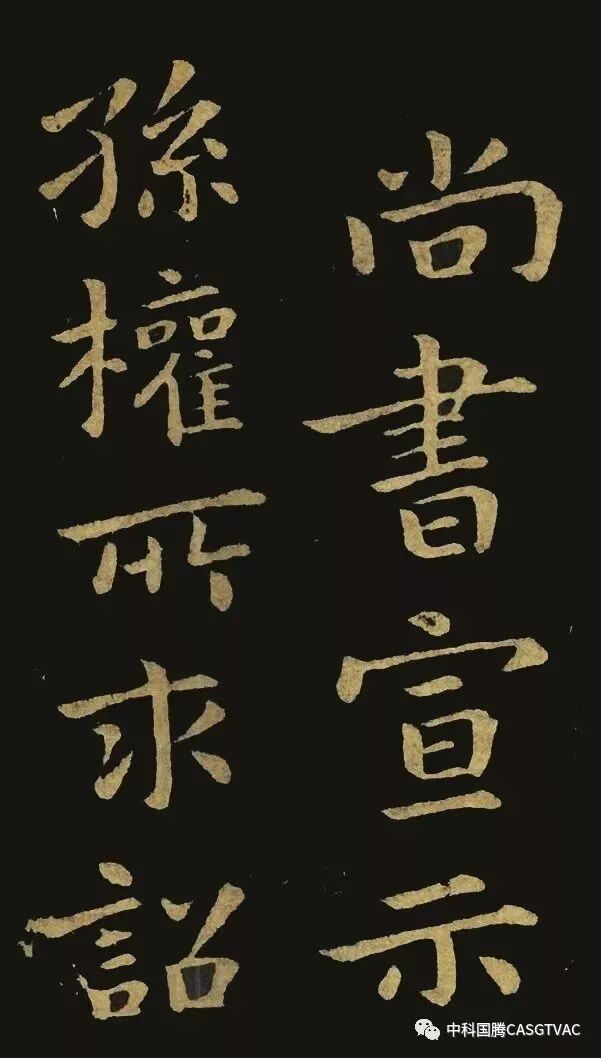 尚書宣示
孫權所求詔
中科国腾CASGTVAC